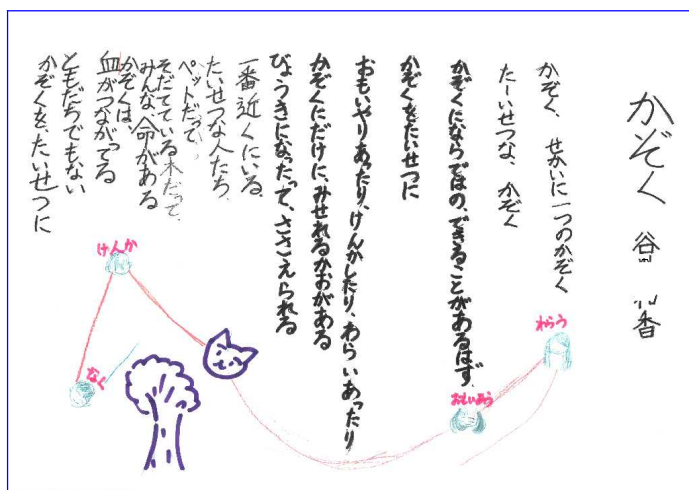 かぞく
かぞく、せかいに一つのかぞく
たーいせつな、かぞく
かぞくにならではの、できることがあるはず
かぞくをたいせつに
おもいやりあったり、けんかしたり、わらいあったり
かぞくにだけに、みせれるかおがある
びょうきになったって、ささえられる
一番近くにいる、
たいせつな人たち、
ペットだって、
そだてている木だって、
みんな、命がある
かぞくは、
血がつながってる
ともだちでもない
かぞくを、たいせつに
わらう
けんか
なく